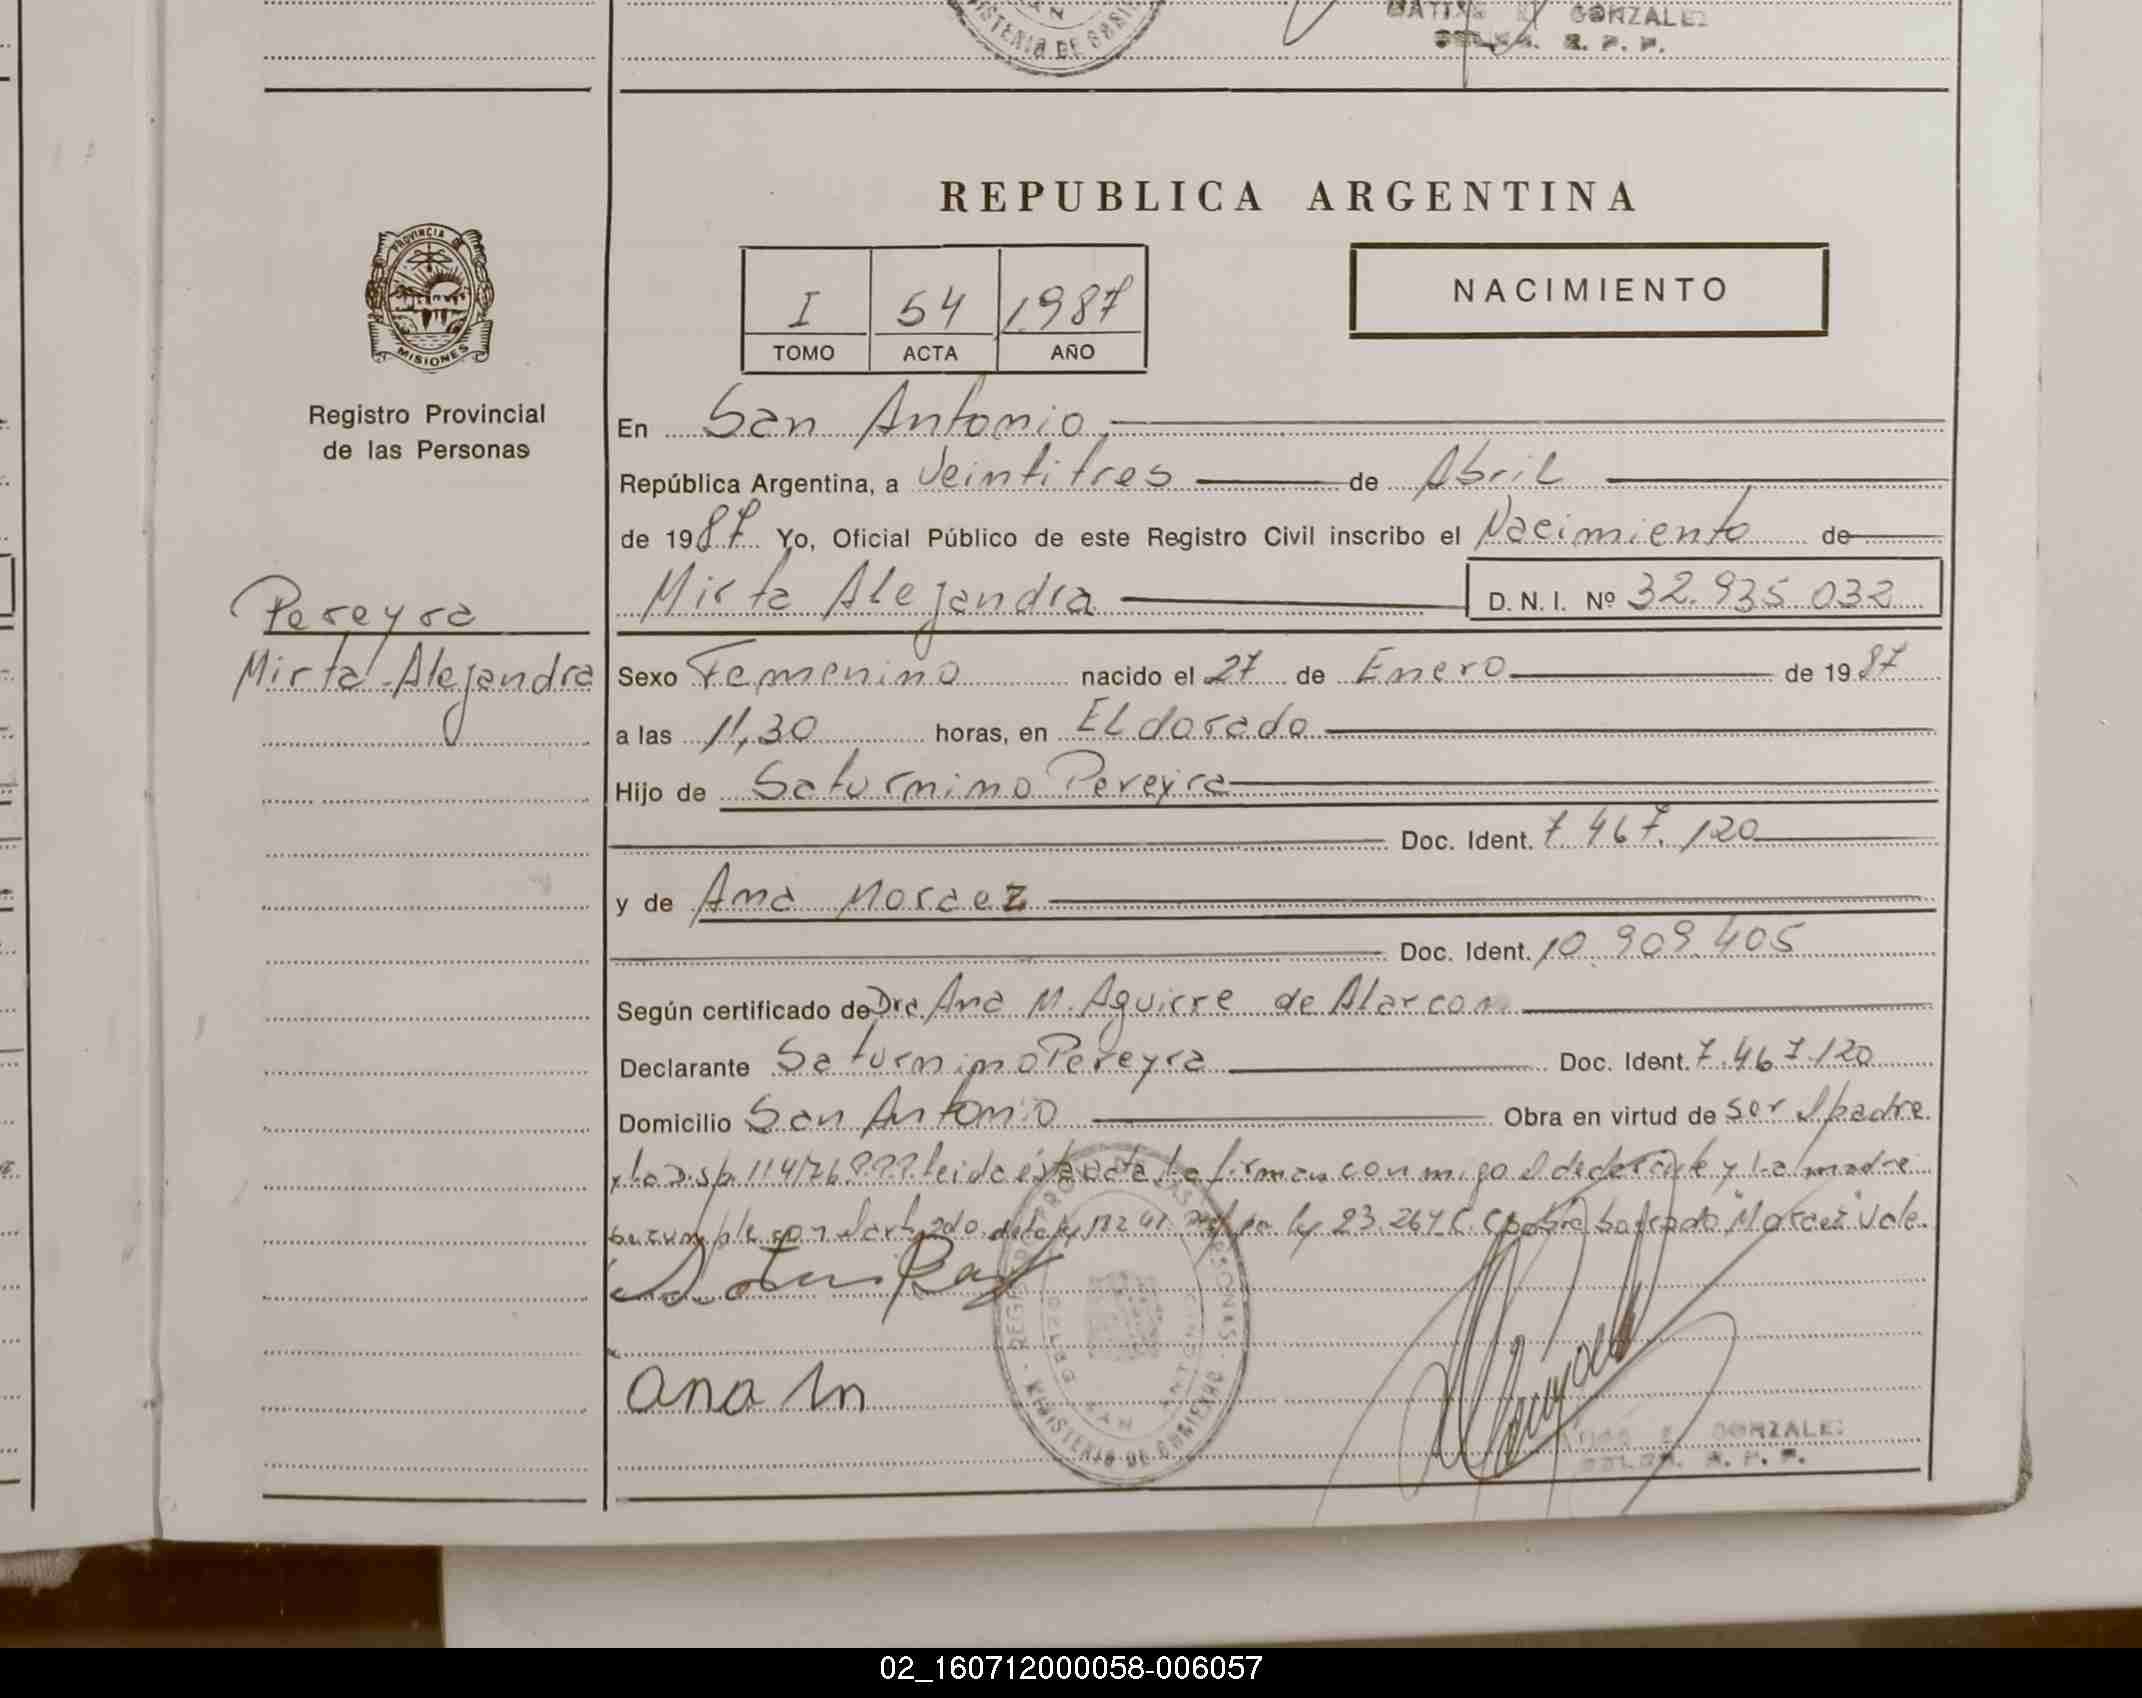 MINISTERIO DE GOBIERNO
GONZALEZ
R. P. P.
REPUBLICA ARGENTINA
PROVINCIA DE
MISIONES
Registro Provincial
de las Personas
I 54 1987
TOMO ACTA AÑO
NACIMIENTO
En San Antonio
República Argentina, a Veintitres de Abril
de 1987 Yo, Oficial Público de este Registro Civil inscribo el Nacimiento de
Mirta Alejandra D. N. I. Nº 32.935.032
Pereyra
Mirta Alejandra
Sexo Femenino nacido el 27 de Enero de 1987
a las 11,30 horas, en Eldorado
Hijo de Saturnino Pereyra
Doc. Ident. 7.467.120
y de Ana Moraez
Doc. Ident. 10.909.405
Según certificado de Dra. Ana M. Aguirre de Alarcon
Declarante Saturnino Pereyra Doc. Ident. 7.467.120
Domicilio San Antonio Obra en virtud de ser el padre
y la Disp. 114/76 leida ésta acta la firman conmigo el declarante y la madre
se cumple con el art. 2do. de la ley 23.264 sobre borrado "Moraez" Vale.
ana m
MINISTERIO DE GOBIERNO
GONZALEZ
R. P. P.
02_160712000058-006057